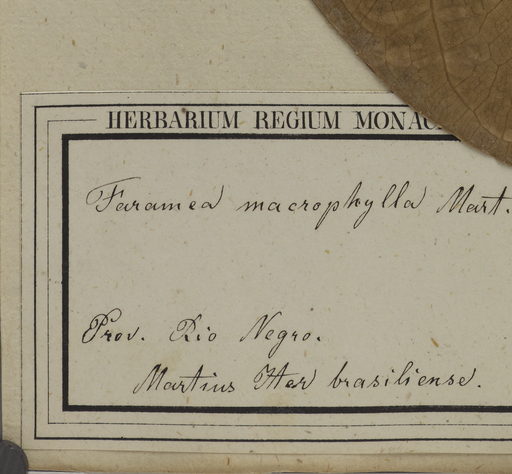 HERBARIUM REGIUM MONAC
Faramea macrophylla Mart.
Prov. Rio Negro.
Martius Iter brasiliense.